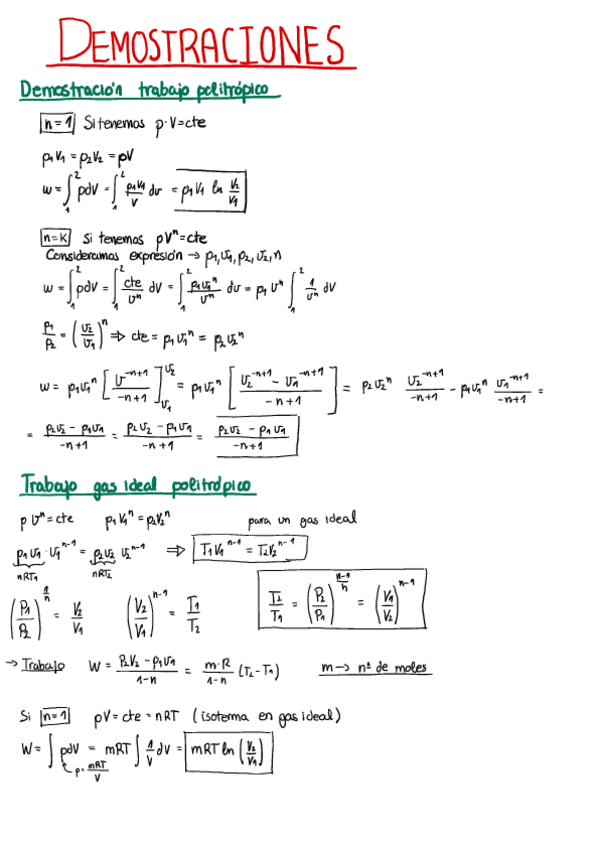 DEMOSTRACIONES
Demostración trabajo politrópico
n=1 Si tenemos p·V=cte
p₁V₁ = p₂V₂ = pV
w = ∫₁² pdV = ∫₁² p₁V₁/V dv = p₁V₁ ln V₂/V₁
n=K Si tenemos pVⁿ=cte
Consideramos expresión → p₁,v₁,p₂,v₂,n
w = ∫₁² pdV = ∫₁² cte/vⁿ dV = ∫₁² p₁v₁ⁿ/vⁿ dv = p₁ vⁿ ∫₁² 1/vⁿ dV
p₁/p₂ = (v₂/v₁)ⁿ ⇒ cte = p₁v₁ⁿ = p₂v₂ⁿ
w = p₁v₁ⁿ [v⁻ⁿ⁺¹/-n+1]v₁v₂ = p₁v₁ⁿ [v₂⁻ⁿ⁺¹ - v₁⁻ⁿ⁺¹/-n+1] = p₂v₂ⁿ v₂⁻ⁿ⁺¹/-n+1 - p₁v₁ⁿ v₁⁻ⁿ⁺¹/-n+1 =
= p₂v₂ - p₁v₁/-n+1 = p₂v₂ - p₁v₁/-n+1 = p₂v₂ - p₁v₁/-n+1
Trabajo gas ideal politrópico
p vⁿ=cte p₁V₁ⁿ = p₂V₂ⁿ para un gas ideal
p₁v₁·v₁ⁿ⁻¹ = p₂v₂ v₂ⁿ⁻¹ ⇒ T₁V₁ⁿ⁻¹ = T₂V₂ⁿ⁻¹
nRT₁ nRT₂
(P₁/P₂)^1/n = V₂/V₁ (V₂/V₁)ⁿ⁻¹ = T₁/T₂ T₂/T₁ = (P₂/P₁)^n-1/n = (V₁/V₂)ⁿ⁻¹
→ Trabajo W = P₂V₂ - p₁v₁/1-n = m·R/1-n (T₂-T₁) m → nº de moles
Si n=1 pV = cte = nRT (isoterma en gas ideal)
W = ∫ pdV = mRT ∫ 1/V dV = mRT ln (V₂/V₁)
p = mRT/V